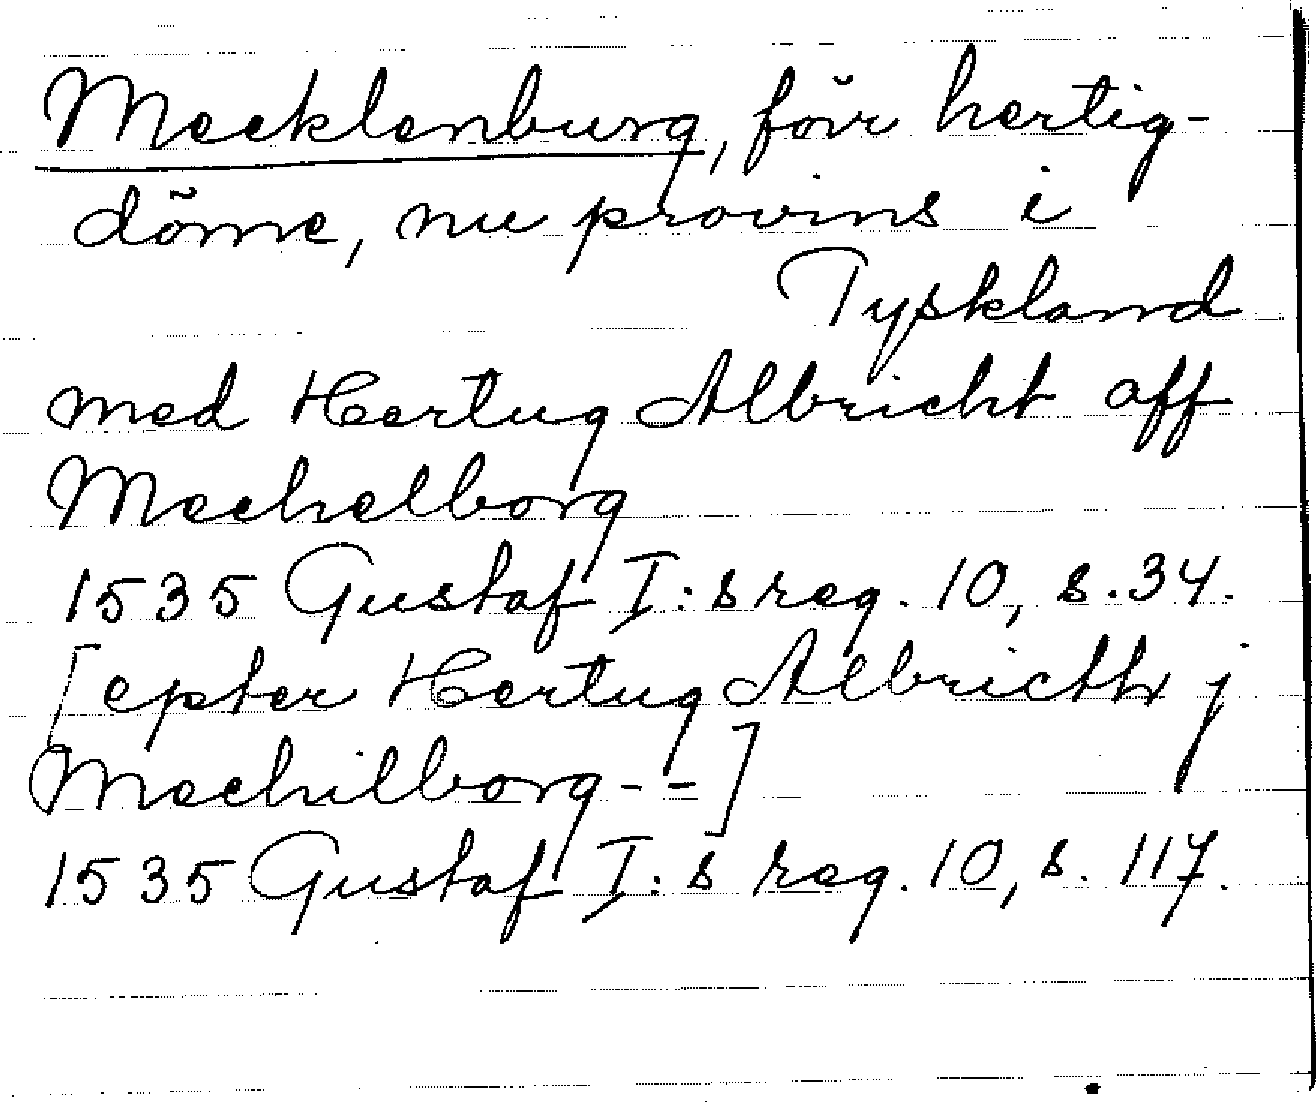 Mecklenburg, förr hertig-
döme, nu provins i
Tyskland
med Hertug Albricht aff
Mechelborg
1535 Gustaf I:s reg. 10, s. 34.
[epter Hertug Albricth j
Mechilborg--]
1535 Gustaf I:s reg. 10, s. 117.